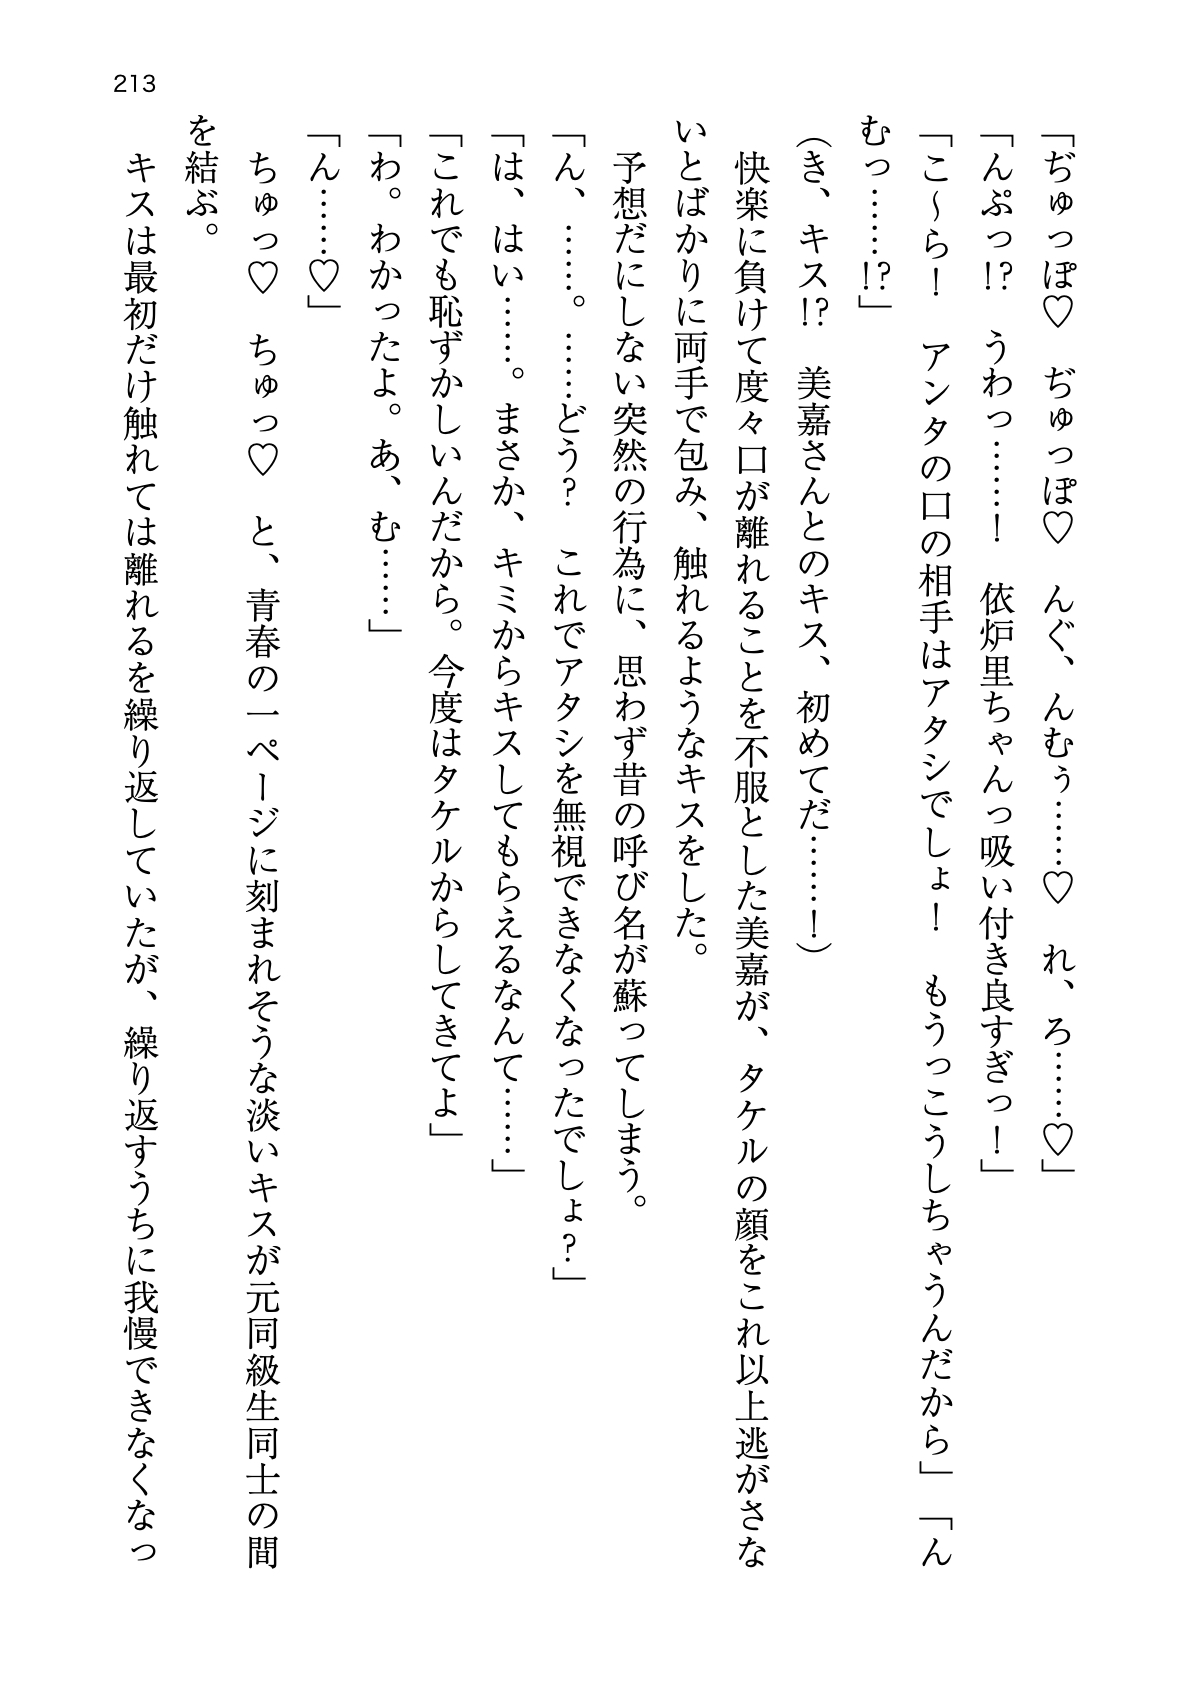 213
「ぢゅっぽ♡　ぢゅっぽ♡　んぐ、んむぅ……♡　れ、ろ……♡」
「んぷっ!?　うわっ……！　依炉里ちゃんっ吸い付き良すぎっ！」
「こ～ら！　アンタの口の相手はアタシでしょ！　もうっこうしちゃうんだから」「ん
むっ……!?」
（き、キス!?　美嘉さんとのキス、初めてだ……！）
　快楽に負けて度々口が離れることを不服とした美嘉が、タケルの顔をこれ以上逃がさな
いとばかりに両手で包み、触れるようなキスをした。
　予想だにしない突然の行為に、思わず昔の呼び名が蘇ってしまう。
「ん、……。……どう？　これでアタシを無視できなくなったでしょ？」
「は、はい……。まさか、キミからキスしてもらえるなんて……」
「これでも恥ずかしいんだから。今度はタケルからしてきてよ」
「わ。わかったよ。あ、む……」
「ん……♡」
　ちゅっ♡　ちゅっ♡　と、青春の一ページに刻まれそうな淡いキスが元同級生同士の間
を結ぶ。
　キスは最初だけ触れては離れるを繰り返していたが、繰り返すうちに我慢できなくなっ